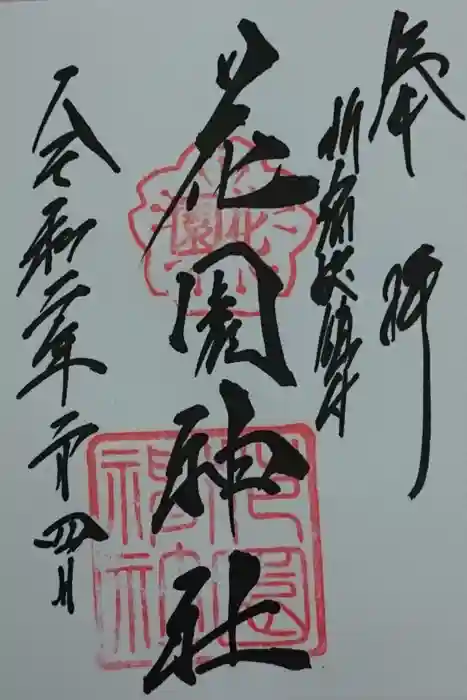 奉拝
新宿総鎮守
花園神社
令和二年二月四日
花園
花園
神社